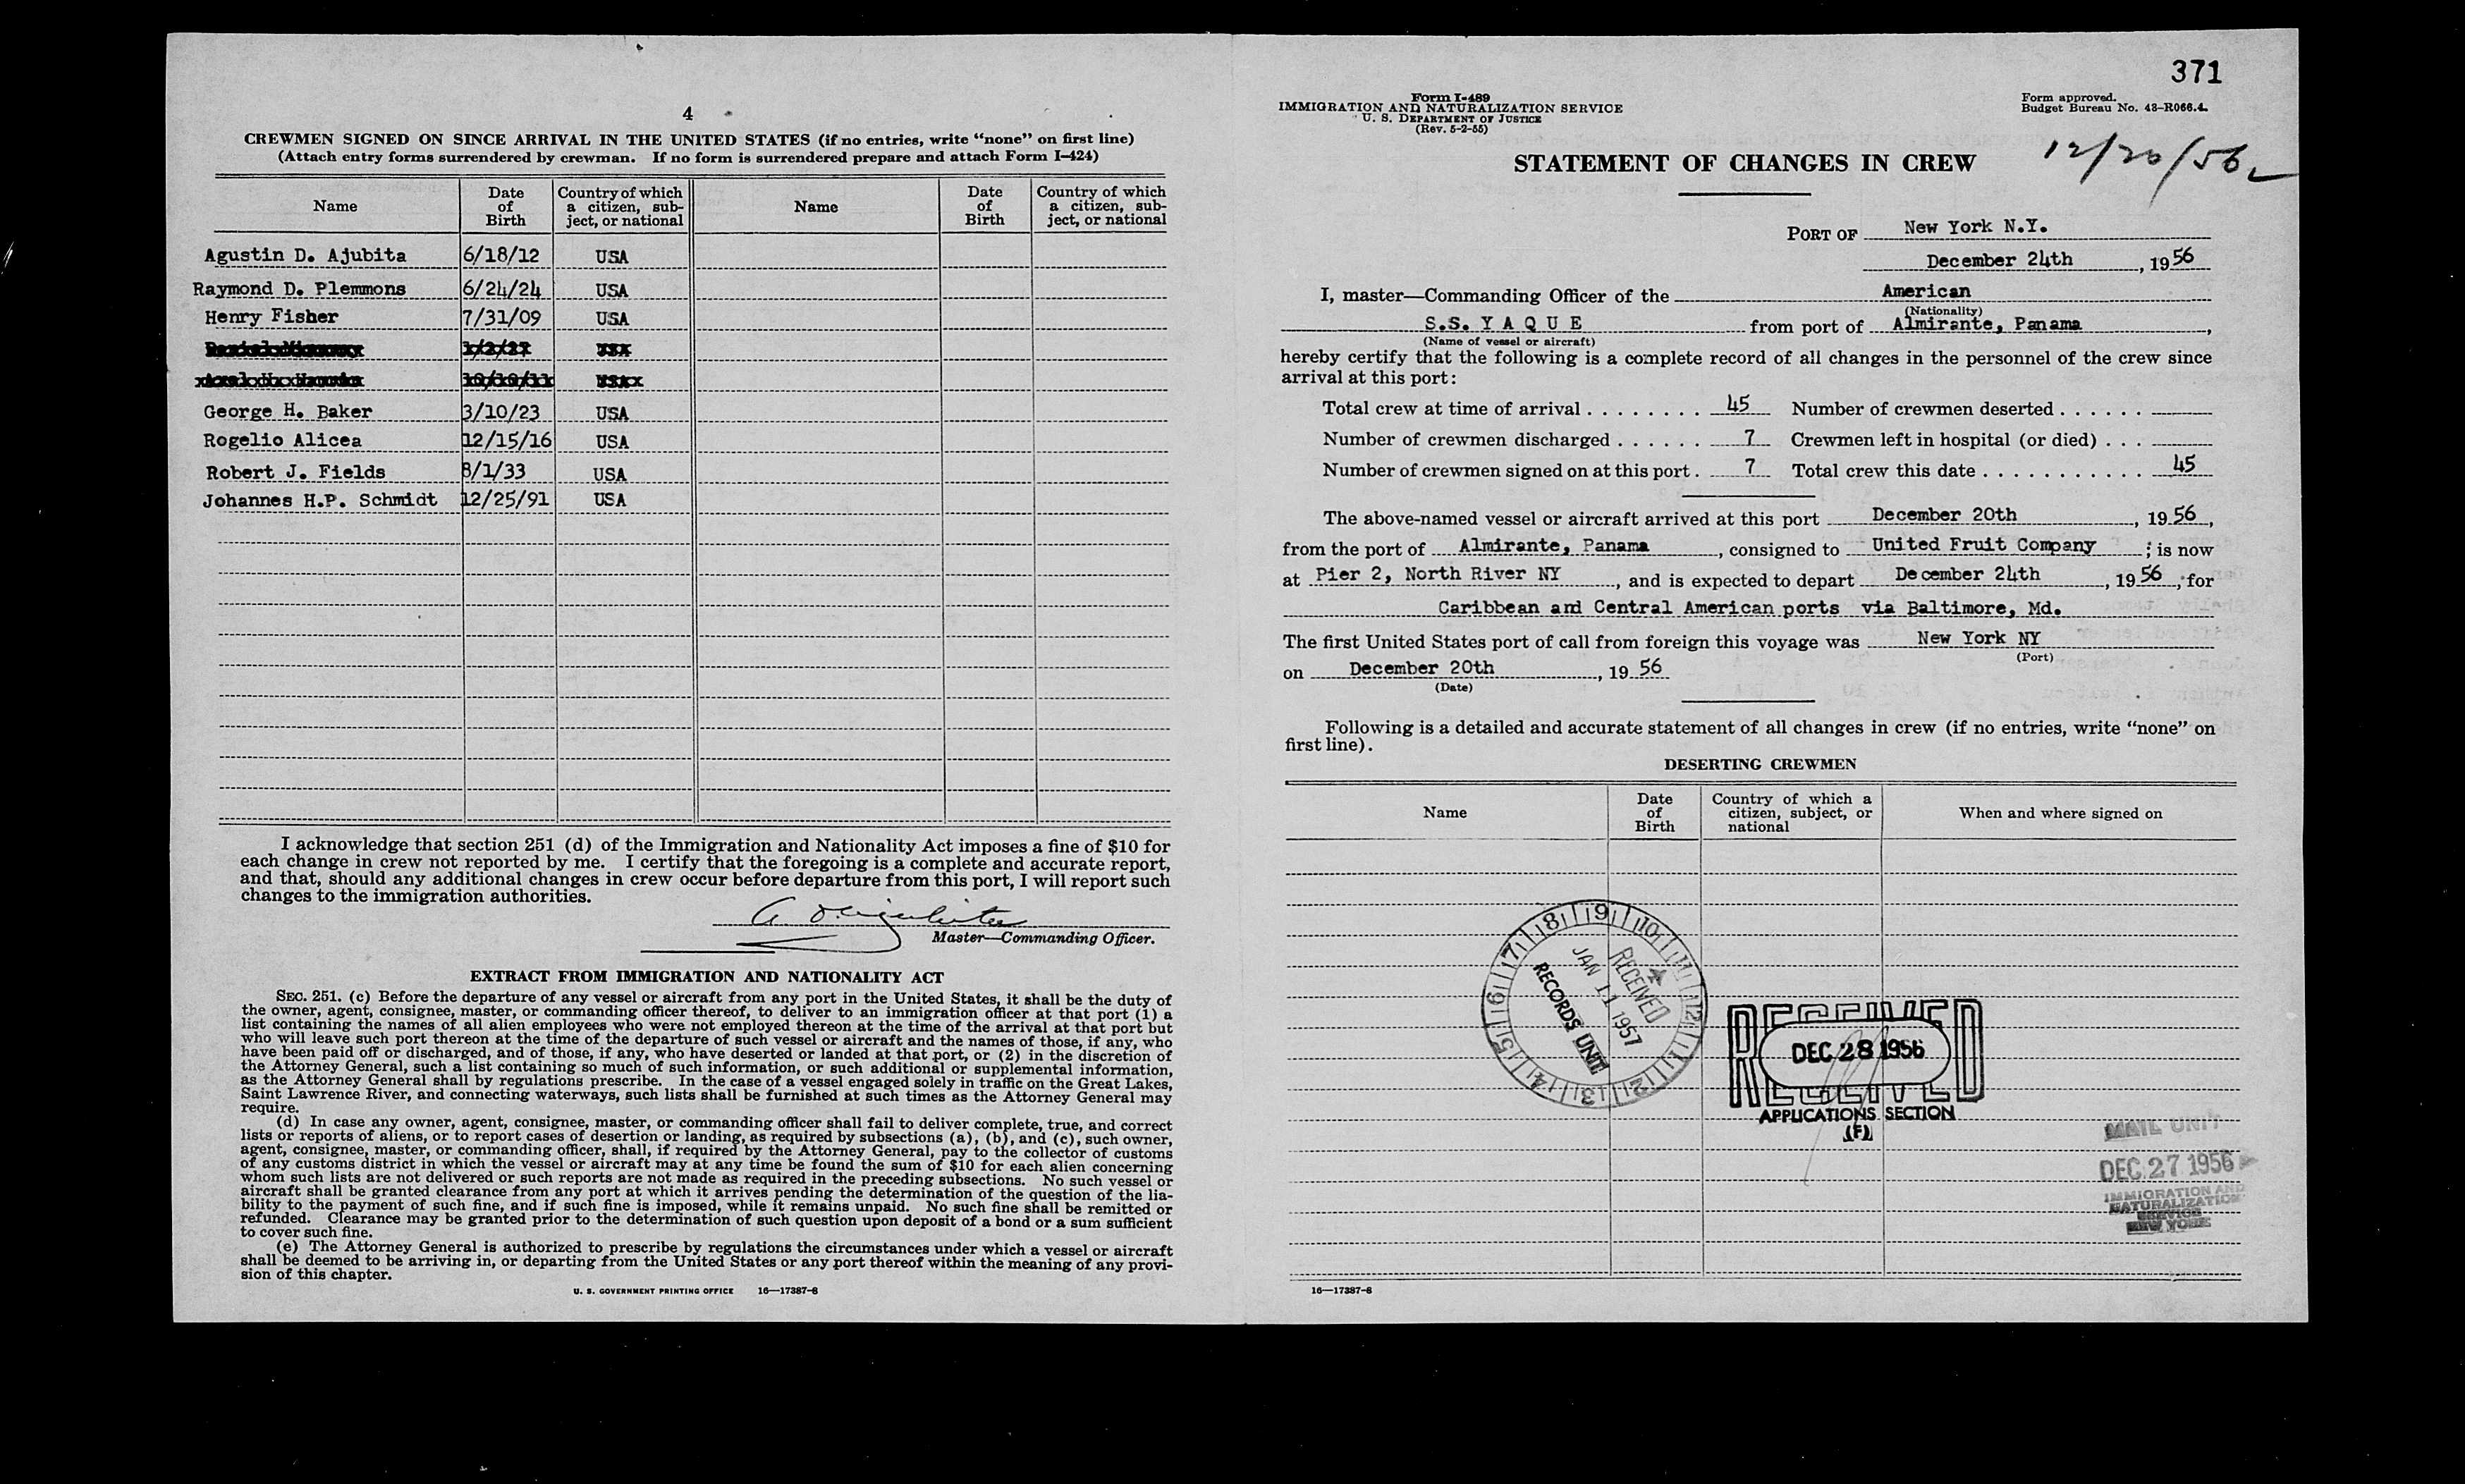 4
CREWMEN SIGNED ON SINCE ARRIVAL IN THE UNITED STATES (if no entries, write “none” on first line)
(Attach entry forms surrendered by crewman. If no form is surrendered prepare and attach Form I-424)
Name Date of Birth Country of which a citizen, sub-ject, or national Name Date of Birth Country of which a citizen, sub-ject, or national
Agustin D. Ajubita 6/18/12 USA
Raymond D. Plemmons 6/24/24 USA
Henry Fisher 7/31/09 USA
George H. Baker 3/10/23 USA
Rogelio Alicea 12/15/16 USA
Robert J. Fields 8/1/33 USA
Johannes H.P. Schmidt 12/25/91 USA
I acknowledge that section 251 (d) of the Immigration and Nationality Act imposes a fine of $10 for
each change in crew not reported by me. I certify that the foregoing is a complete and accurate report,
and that, should any additional changes in crew occur before departure from this port, I will report such
changes to the immigration authorities.
Master—Commanding Officer.
EXTRACT FROM IMMIGRATION AND NATIONALITY ACT
SEC. 251. (c) Before the departure of any vessel or aircraft from any port in the United States, it shall be the duty of
the owner, agent, consignee, master, or commanding officer thereof, to deliver to an immigration officer at that port (1) a
list containing the names of all alien employees who were not employed thereon at the time of the arrival at that port but
who will leave such port thereon at the time of the departure of such vessel or aircraft and the names of those, if any, who
have been paid off or discharged, and of those, if any, who have deserted or landed at that port, or (2) in the discretion of
the Attorney General, such a list containing so much of such information, or such additional or supplemental information,
as the Attorney General shall by regulations prescribe. In the case of a vessel engaged solely in traffic on the Great Lakes,
Saint Lawrence River, and connecting waterways, such lists shall be furnished at such times as the Attorney General may
require.
(d) In case any owner, agent, consignee, master, or commanding officer shall fail to deliver complete, true, and correct
lists or reports of aliens, or to report cases of desertion or landing, as required by subsections (a), (b), and (c), such owner,
agent, consignee, master, or commanding officer, shall, if required by the Attorney General, pay to the collector of customs
of any customs district in which the vessel or aircraft may at any time be found the sum of $10 for each alien concerning
whom such lists are not delivered or such reports are not made as required in the preceding subsections. No such vessel or
aircraft shall be granted clearance from any port at which it arrives pending the determination of the question of the lia-
bility to the payment of such fine, and if such fine is imposed, while it remains unpaid. No such fine shall be remitted or
refunded. Clearance may be granted prior to the determination of such question upon deposit of a bond or a sum sufficient
to cover such fine.
(e) The Attorney General is authorized to prescribe by regulations the circumstances under which a vessel or aircraft
shall be deemed to be arriving in, or departing from the United States or any port thereof within the meaning of any provi-
sion of this chapter.
U. S. GOVERNMENT PRINTING OFFICE 16—17387-8
371
Form I-489
IMMIGRATION AND NATURALIZATION SERVICE
U. S. DEPARTMENT OF JUSTICE
(Rev. 5-2-55)
Form approved.
Budget Bureau No. 43-R066.4.
12/20/56
STATEMENT OF CHANGES IN CREW
PORT OF New York N.Y.
December 24th, 1956
I, master—Commanding Officer of the American
(Nationality)
S.S. Y A Q U E from port of Almirante, Panama,
(Name of vessel or aircraft)
hereby certify that the following is a complete record of all changes in the personnel of the crew since
arrival at this port:
Total crew at time of arrival . . . . . . . . 45 Number of crewmen deserted . . . . . .
Number of crewmen discharged . . . . . . 7 Crewmen left in hospital (or died) . . .
Number of crewmen signed on at this port . 7 Total crew this date . . . . . . . . . . . 45
The above-named vessel or aircraft arrived at this port December 20th, 1956,
from the port of Almirante, Panama, consigned to United Fruit Company; is now
at Pier 2, North River NY, and is expected to depart December 24th, 1956, for
Caribbean and Central American ports via Baltimore, Md.
The first United States port of call from foreign this voyage was New York NY
(Port)
on December 20th, 1956
(Date)
Following is a detailed and accurate statement of all changes in crew (if no entries, write “none” on
first line).
DESERTING CREWMEN
Name Date of Birth Country of which a citizen, subject, or national When and where signed on
RECEIVED
JAN 11 1957
RECORDS UNIT
RECEIVED
DEC 28 1956
RECEIVED
APPLICATIONS SECTION
(F)
MAIL UNIT
DEC 27 1956
IMMIGRATION AND
NATURALIZATION
SERVICE
NEW YORK
16—17387-8